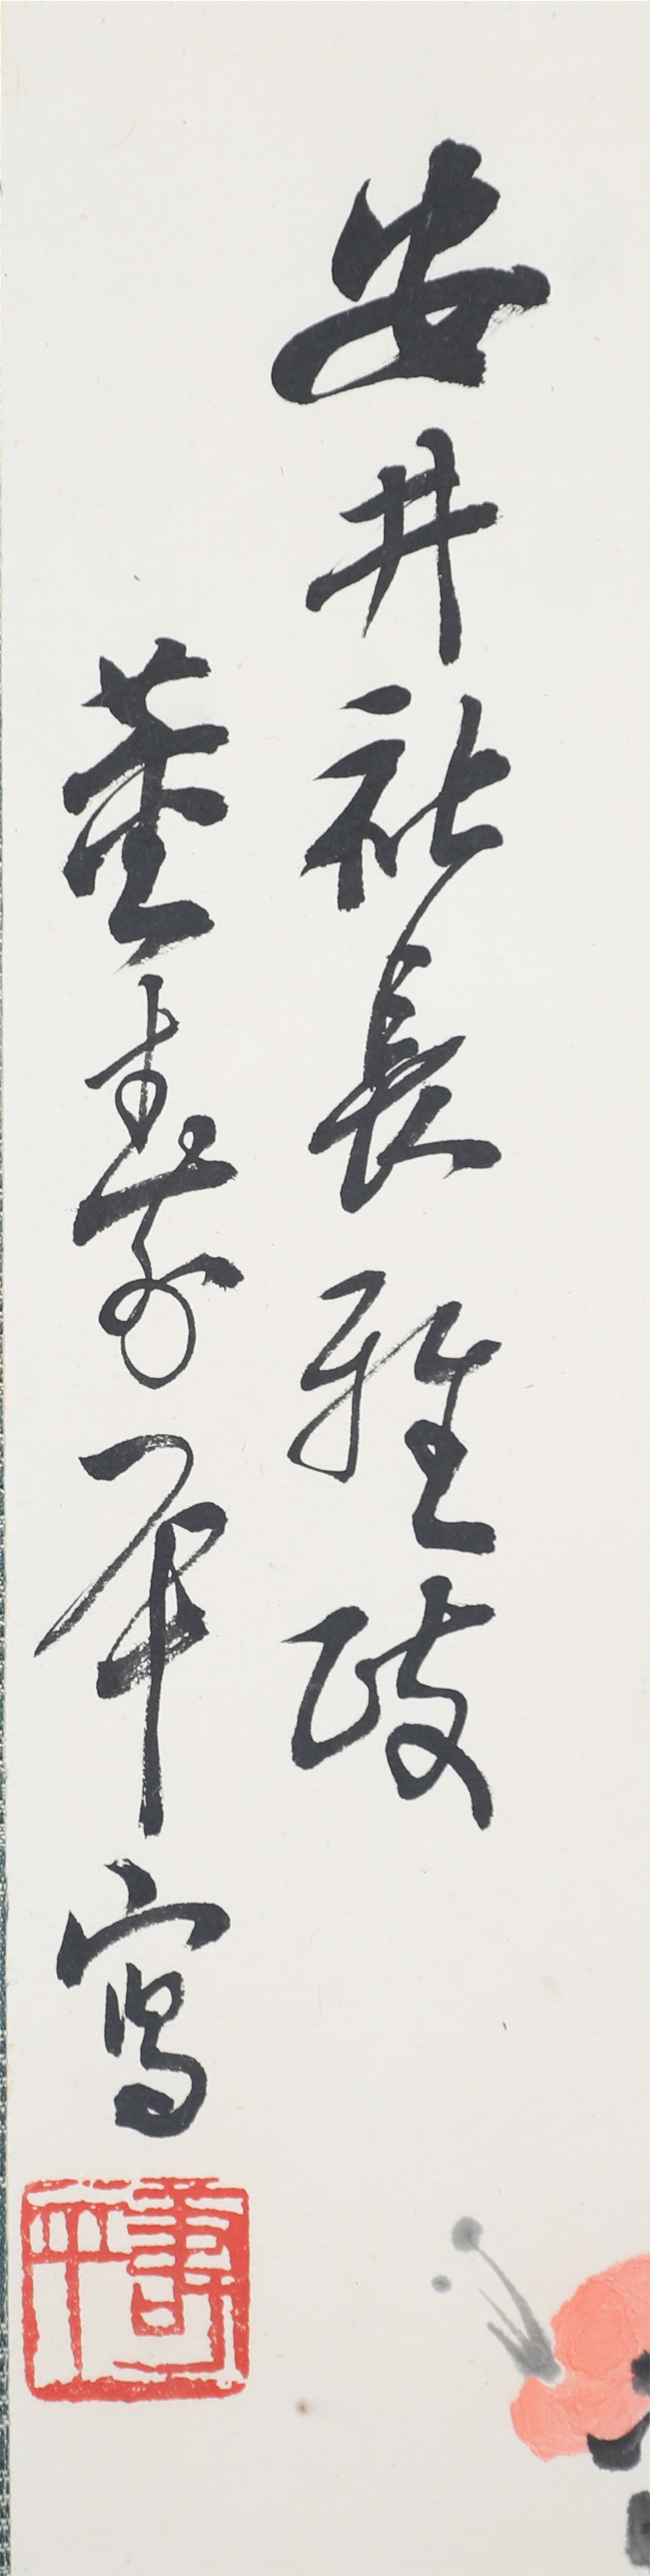 安井社長雅政
董壽平寫
壽平